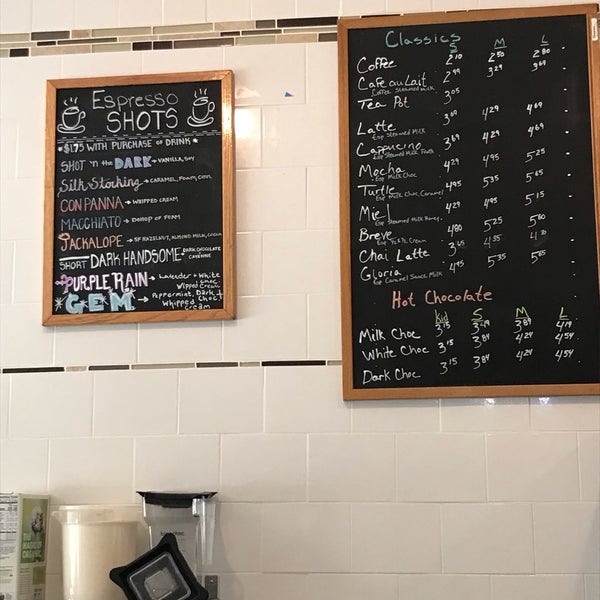 Espresso
SHOTS
*$1.75 WITH PURCHASE OF DRINK*
SHOT 'n the DARK → VANILLA, SOY
Silk Stocking → CARAMEL, FOAM, CINN.
CON PANNA → WHIPPED CREAM
MACCHIATO → DOLLOP OF FOAM
JACKALOPE → SF HAZELNUT, ALMOND MILK, COCOA
SHORT DARK HANDSOME → DARK CHOCOLATE
CAYENNE
PURPLE RAIN → Lavender + White
Choc
Wipped Cream
G.E.M. → Peppermint, Dark Choc!
Whipped
cream
Classics
S M L
Coffee 2.10 2.50 2.80
Cafe au Lait 2.99 3.29 3.69
Coffee Steamed milk
Tea Pot 3.05
Latte 3.69 4.29 4.69
Esp Steamed Milk
Cappucino 3.69 4.29 4.69
Esp Steamed Milk Froth
Mocha 4.29 4.95 5.25
Esp Milk Choc
Turtle 4.95 5.35 5.65
Esp Milk Choc Caramel
Miel 4.29 4.95 5.15
Esp Steamed Milk Honey
Breve 4.80 5.25 5.80
Cream
Chai Latte 3.65 4.35 4.70
Gloria 4.95 5.35 5.65
Esp Caramel Sauce Milk
Hot Chocolate
Kid S M L
Milk Choc 3.15 3.49 3.89 4.19
White Choc 3.15 3.84 4.24 4.54
Dark Choc 3.15 3.84 4.24 4.54